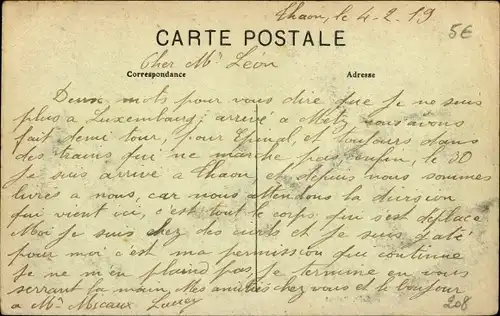 Thaon, le 4-2-19
5€
CARTE POSTALE
Cher Mr Léon
Correspondance
Adresse
Deux mots pour vous dire que je ne suis
plus a Luxembourg; arrivé a Metz, nous avons
fait demi tour, pour Epinal, et toujours dans
des trains qui ne marche pas, enfin, le 30
je suis arrivé a Thaon, et depuis nous sommes
livrés a nous, car nous attendons la division
qui vient ici, c'est tout le corps qui s'est déplacé
Moi je suis chez des civils et je suis gaté
pour moi c'est ma permission qui continue
je ne m'en plaind pas, je termine en vous
serrant la main, Mes amitiés chez vous et le bonjour
a Mr Micaux
208